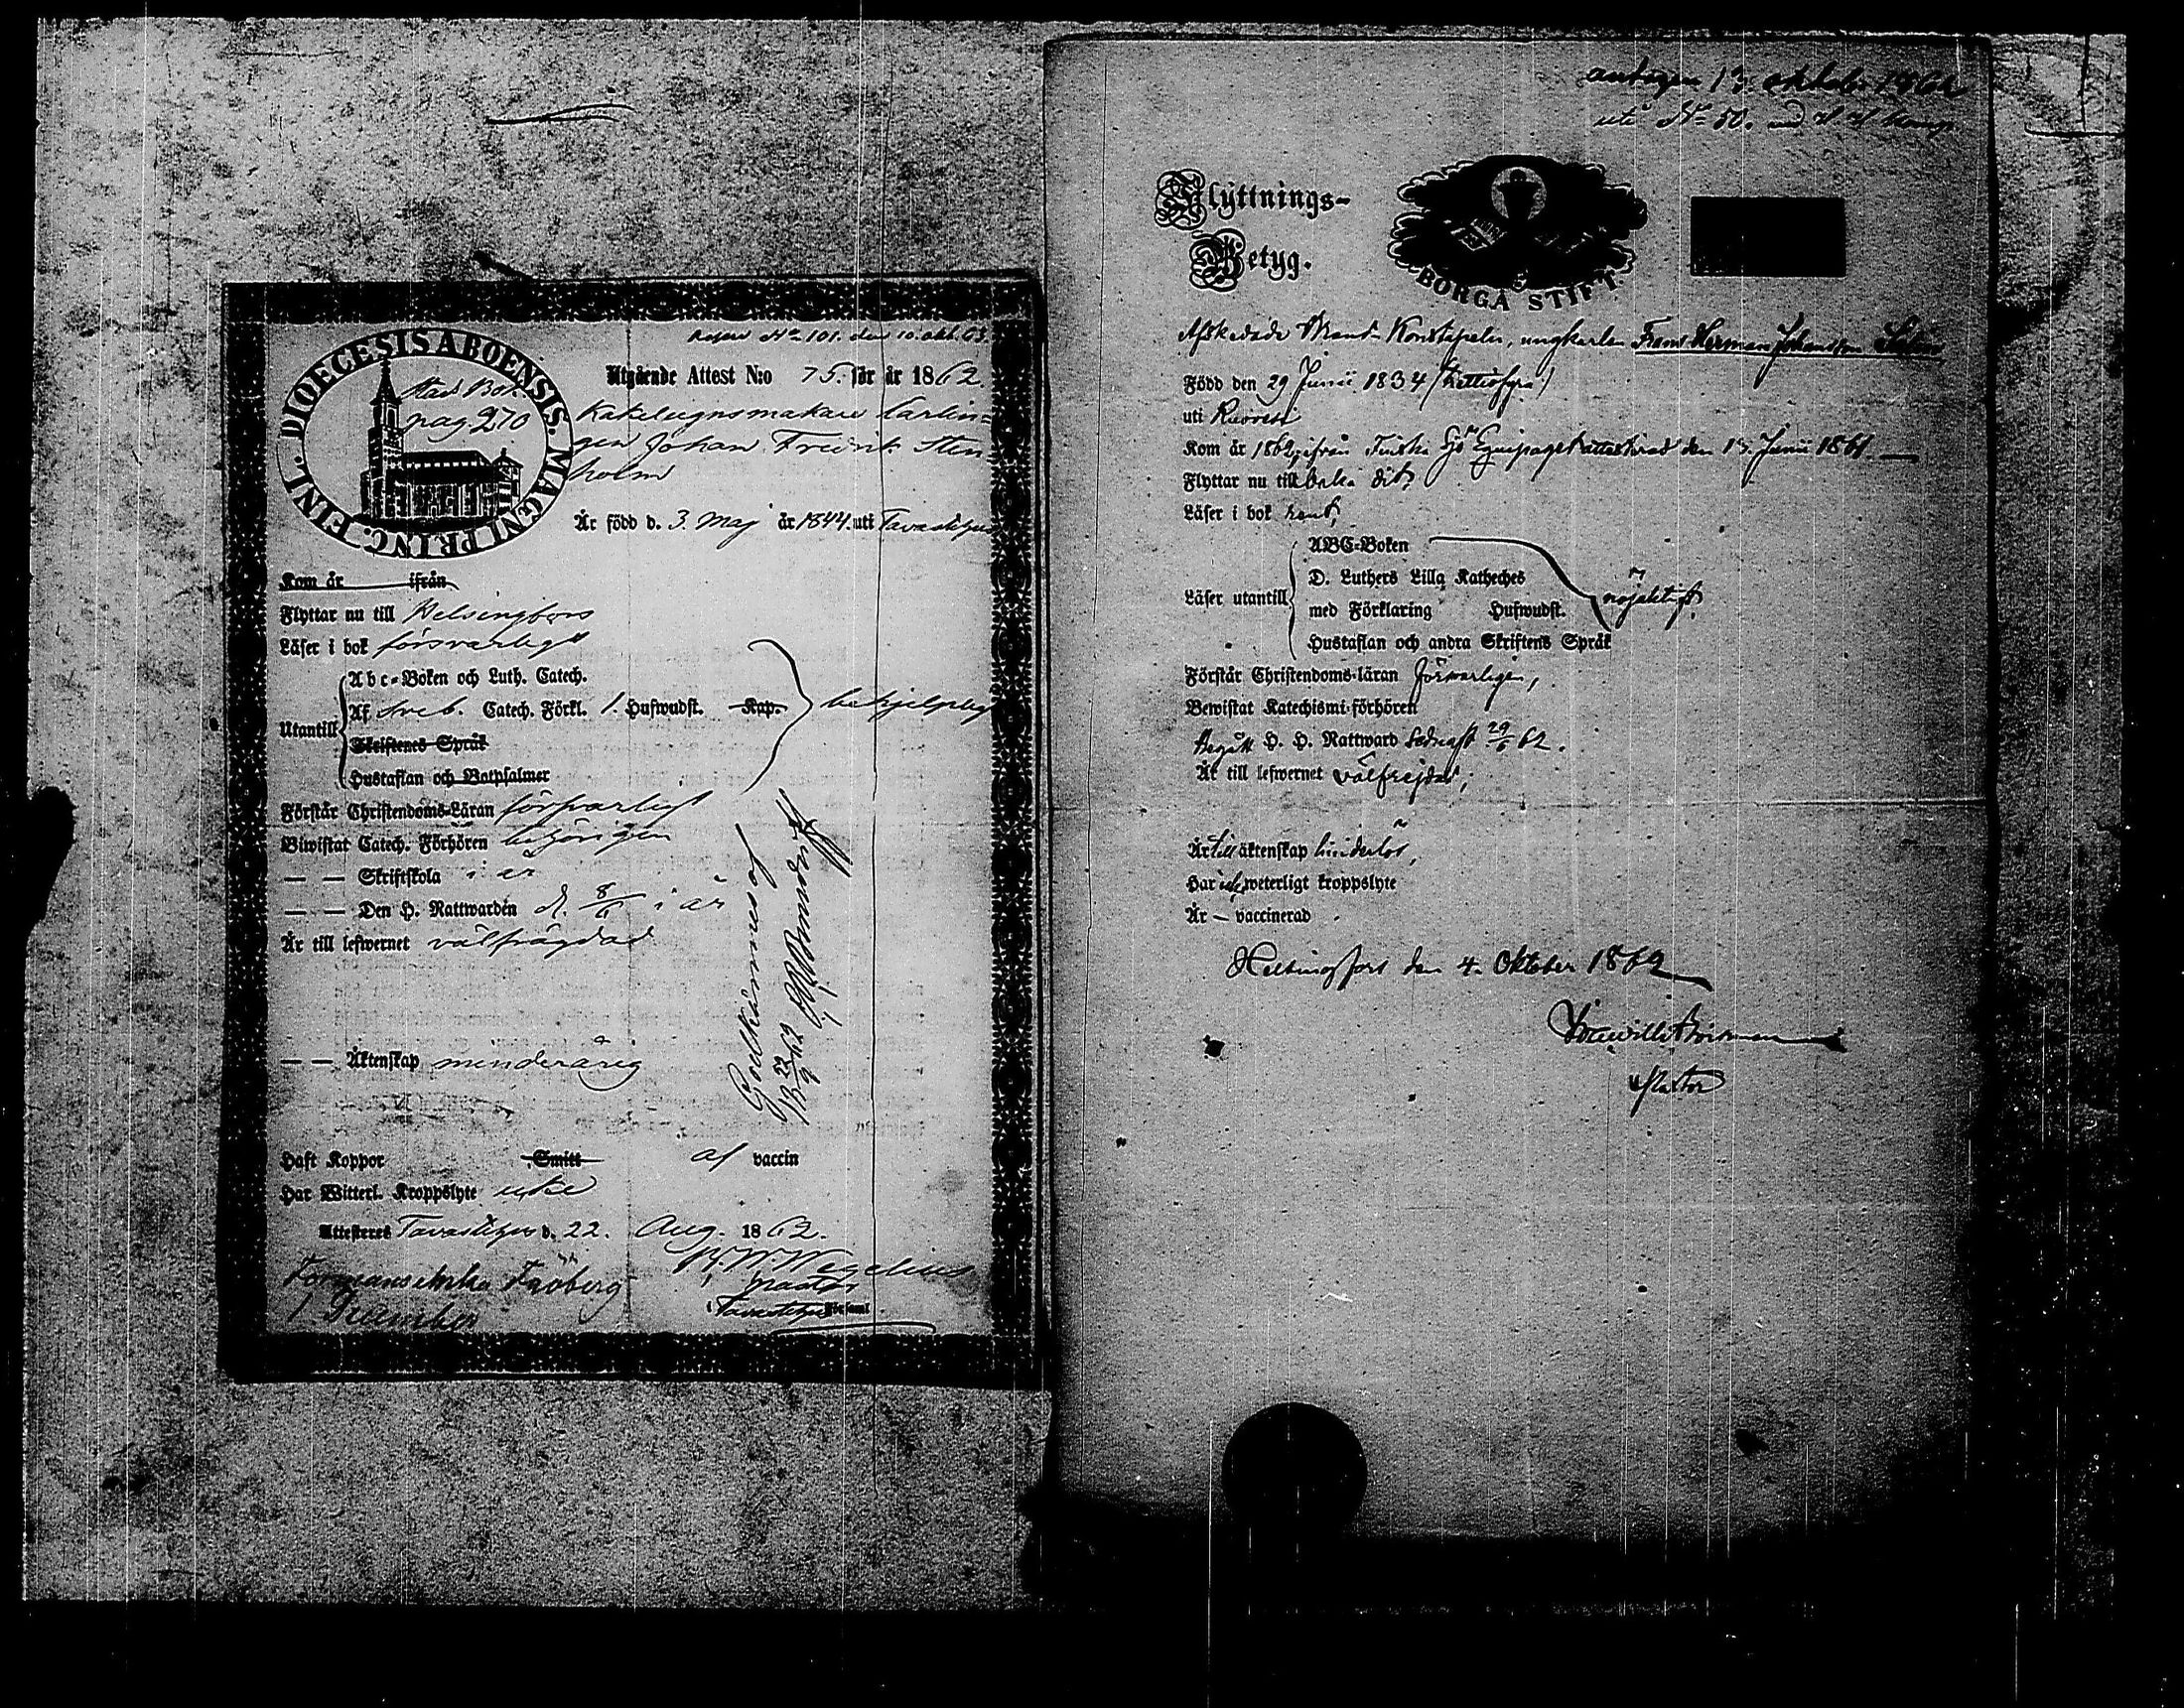 DIOECESIS ABOENSIS. MAGNI PRINC. FINL.
Stads Bok
pag 270
N:o 101. den 10. okt. 63.
Utgående Attest N:o 75. för år 1862.
Kakelugnsmakare Lärlin=
gen Johan Fredrik Sten
holm
Är född d. 3. Maj år 1844. uti Tavastehus
Kom år ifrån
Flyttar nu till Helsingfors
Läser i bok försvarligt
Utantill
Abc-Boken och Luth. Catech.
Af Sveb. Catech. Förkl. 1. Hufwudst. Kap.
Skriftenes Språk
Hustaflan och Botpsalmer
behjelpligt
Förstår Christendoms-Läran försvarligt
Biwistat Catech. Förhören behörigen
— — Skriftskola
— — Den H. Nattwarden d. 8/6 i år
Är till lefwernet välfrägdad
— — Äktenskap minderårig
Godkännes af
Haft Koppor Smitt af vaccin
Har Witterl. Kroppslyte icke
Attesteras Tavastehus d. 22. Aug. 1862.
Wegelius
Pastor
i Tavastehus Församl.
Fröberg
antagen 13. oktob. 1862
uti N:o 50.
Flyttnings-
Betyg.
BORGÅ STIFT.
Afskedade Konstapeln, ungkarlen Frans Herman Johansson
Född den 29 Junii 1834 (trettiofyra)
uti Ruovesi
Kom år 1862 ifrån Finska Sjö Equipaget attesterad den 13. Junii 1861.
Flyttar nu tillbaka dit,
Läser i bok rent,
Läser utantill
ABC-Boken
D. Luthers Lilla Katheches
med Förklaring Hufwudst.
Hustaflan och andra Skriftens Språk
nöjaktigt,
Förstår Christendoms-läran försvarligen,
Bewistat Katechismi-förhören
Begått H. H. Nattward sednast 29/6 62.
Är till lefwernet välfrejdad,
Är till äktenskap hinderlös,
Har icke weterligt kroppslyte
Är — vaccinerad
Helsingfors den 4. Oktober 1862
Pastor